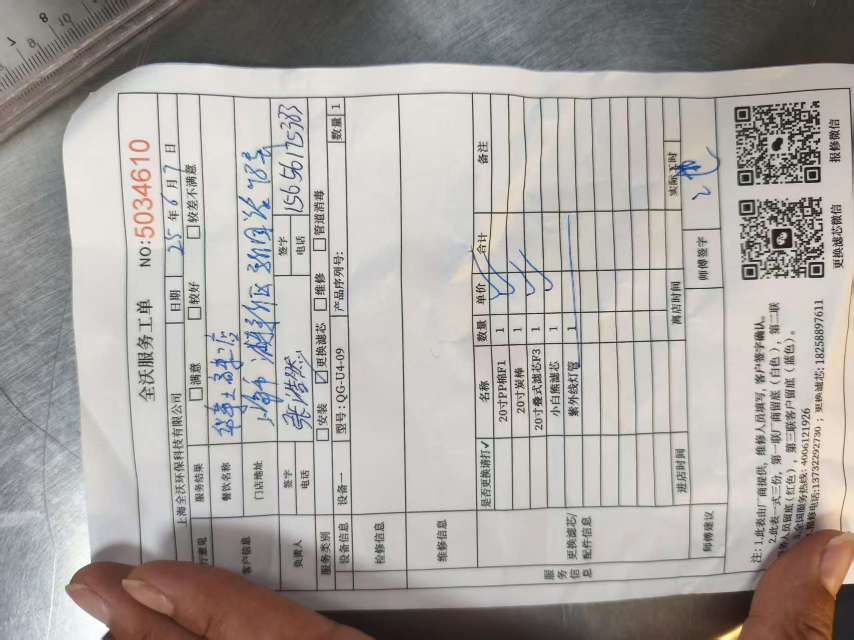 全沃服务工单
NO:5034610
上海全沃环保科技有限公司 日期 25年6月7日
服务结果 满意 较好 较差不满意
客户信息 餐饮名称
门店地址
负责人 签字 签字
电话 电话 15656175383
服务类别 安装 ☑更换滤芯 维修 管道消毒
设备信息 设备一 型号:QG-U4-09 产品序列号: 数量 1
检修信息
维修信息
服务信息
更换滤芯/配件信息
是否更换请打✓ 名称 数量 单价 合计 备注
20寸PP棉F1 1
20寸炭棒 1
20寸叠式滤芯F3 1
小白熊滤芯 1
紫外线灯管 1
进店时间 离店时间 实际工时
师傅建议 师傅签字
注: 1.此表由厂商提供, 维修人员填写, 客户签字确认。
2.此表一式三份, 第一联厂商留底(白色), 第二联
人员留底(红色), 第三联客户留底(蓝色)。
3.全国服务热线: 4006121926
报修电话:13732292730 ; 更换滤芯: 18258897611
更换滤芯微信 报修微信